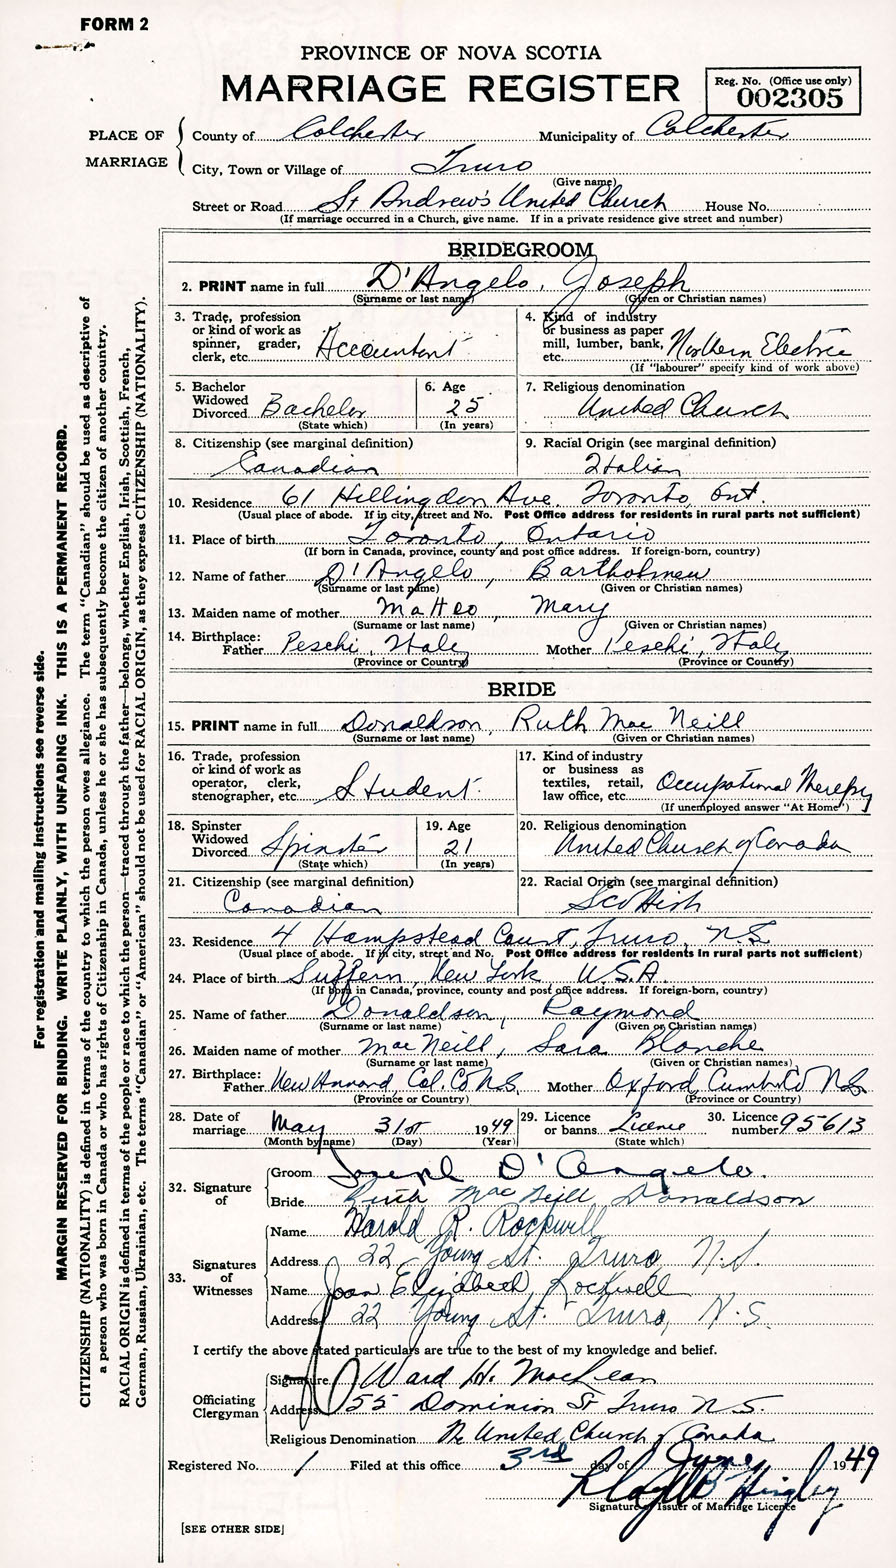 FORM 2
PROVINCE OF NOVA SCOTIA
MARRIAGE REGISTER
Reg. No. (Office use only)
002305
PLACE OF MARRIAGE
County of Colchester Municipality of Colchester
City, Town or Village of Truro
(Give name)
Street or Road St Andrew's United Church House No.
(If marriage occurred in a Church, give name. If in a private residence give street and number)
BRIDEGROOM
2. PRINT name in full D'Angelo, Joseph
(Surname or last name) (Given or Christian names)
3. Trade, profession or kind of work as spinner, grader, clerk, etc. Accountant
4. Kind of industry or business as paper mill, lumber, bank, etc. Northern Electric
(If "labourer" specify kind of work above)
5. Bachelor Widowed Divorced Bachelor
(State which)
6. Age 25
(In years)
7. Religious denomination
United Church
8. Citizenship (see marginal definition)
Canadian
9. Racial Origin (see marginal definition)
Italian
10. Residence 61 Hillingdon Ave, Toronto, Ont.
(Usual place of abode. If in city, street and No. Post Office address for residents in rural parts not sufficient)
11. Place of birth Toronto, Ontario
(If born in Canada, province, county and post office address. If foreign-born, country)
12. Name of father D'Angelo, Bartholmew
(Surname or last name) (Given or Christian names)
13. Maiden name of mother Matteo, Mary
(Surname or last name) (Given or Christian names)
14. Birthplace: Father Peschi, Italy Mother Peschi, Italy
(Province or Country) (Province or Country)
BRIDE
15. PRINT name in full Donaldson, Ruth Mac Neill
(Surname or last name) (Given or Christian names)
16. Trade, profession or kind of work as operator, clerk, stenographer, etc. Student
17. Kind of industry or business as textiles, retail, law office, etc. Occupational Therepy
(If unemployed answer "At Home")
18. Spinster Widowed Divorced Spinster
(State which)
19. Age 21
(In years)
20. Religious denomination
United Church of Canada
21. Citizenship (see marginal definition)
Canadian
22. Racial Origin (see marginal definition)
Scottish
23. Residence 4 Hampstead Court, Truro, N.S.
(Usual place of abode. If in city, street and No. Post Office address for residents in rural parts not sufficient)
24. Place of birth Suffern, New York, U.S.A.
(If born in Canada, province, county and post office address. If foreign-born, country)
25. Name of father Donaldson, Raymond
(Surname or last name) (Given or Christian names)
26. Maiden name of mother MacNeill, Sara Blanche
(Surname or last name) (Given or Christian names)
27. Birthplace: Father New Annard, Col. Co N.S. Mother Oxford, Cumb. Co N.S.
(Province or Country) (Province or Country)
28. Date of marriage May 31st 1949
(Month by name) (Day) (Year)
29. Licence or banns Licence
(State which)
30. Licence number 95613
32. Signature of
Groom Joseph D'Angelo
Bride Ruth MacNeill Donaldson
33. Signatures of Witnesses
Name Harold R. Rockwell
Address 22 Young St. Truro, N.S.
Name Joan Elizabeth Rockwell
Address 22 Young St. Truro, N.S.
I certify the above stated particulars are true to the best of my knowledge and belief.
Officiating Clergyman
Signature Ward H. MacLean
Address 55 Dominion St Truro N.S.
Religious Denomination The United Church of Canada
Registered No. 1 Filed at this office 3rd day of June 1949
Signature of Issuer of Marriage Licence
[SEE OTHER SIDE]
For registration and mailing instructions see reverse side.
MARGIN RESERVED FOR BINDING. WRITE PLAINLY, WITH UNFADING INK. THIS IS A PERMANENT RECORD.
CITIZENSHIP (NATIONALITY) is defined in terms of the country to which the person owes allegiance. The term "Canadian" should be used as descriptive of
a person who was born in Canada or who has rights of Citizenship in Canada, unless he or she has subsequently become the citizen of another country.
RACIAL ORIGIN is defined in terms of the people or race to which the person—traced through the father—belongs, whether English, Irish, Scottish, French,
German, Russian, Ukrainian, etc. The terms "Canadian" or "American" should not be used for RACIAL ORIGIN, as they express CITIZENSHIP (NATIONALITY).